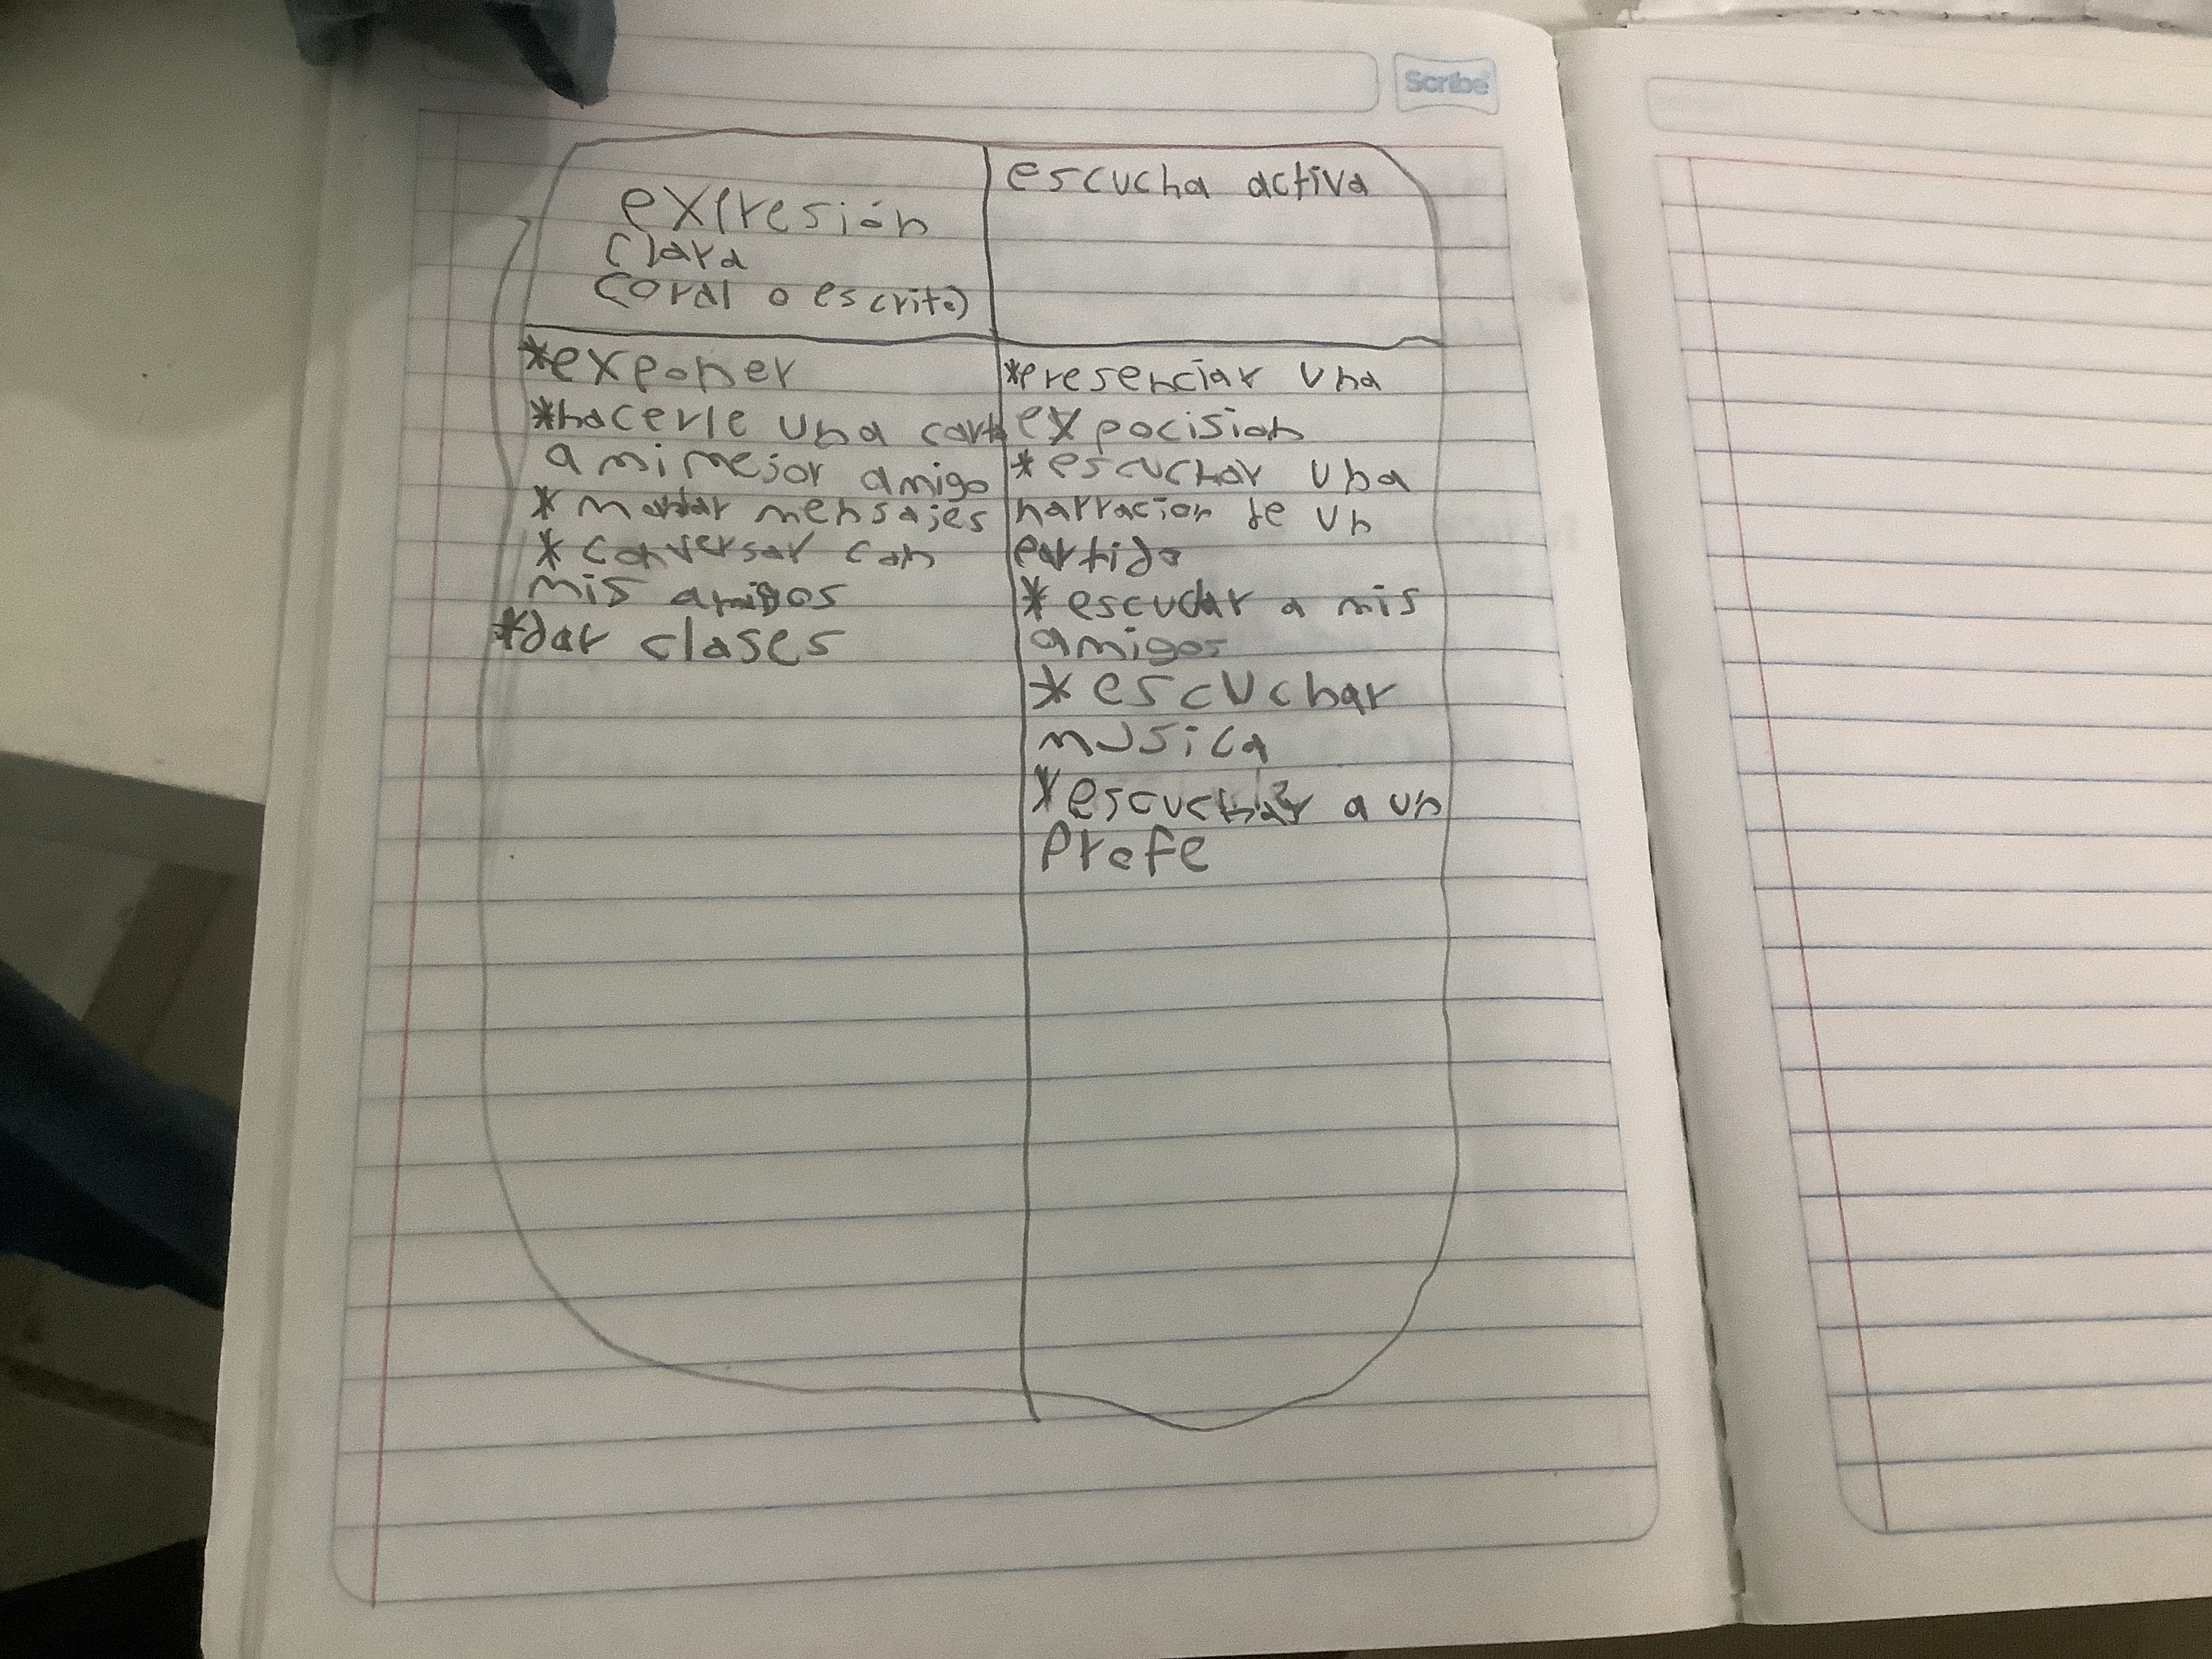 Scribe
expresión
clara
(oral o escrito)
*exponer
*hacerle una carta
a mi mejor amigo
* mandar mensajes
* conversar con
mis amigos
*dar clases
escucha activa
*presenciar una
expocision
* escuchar una
narracion de un
partido
* escuchar a mis
amigos
* escuchar
musica
*escuchar a un
Profe